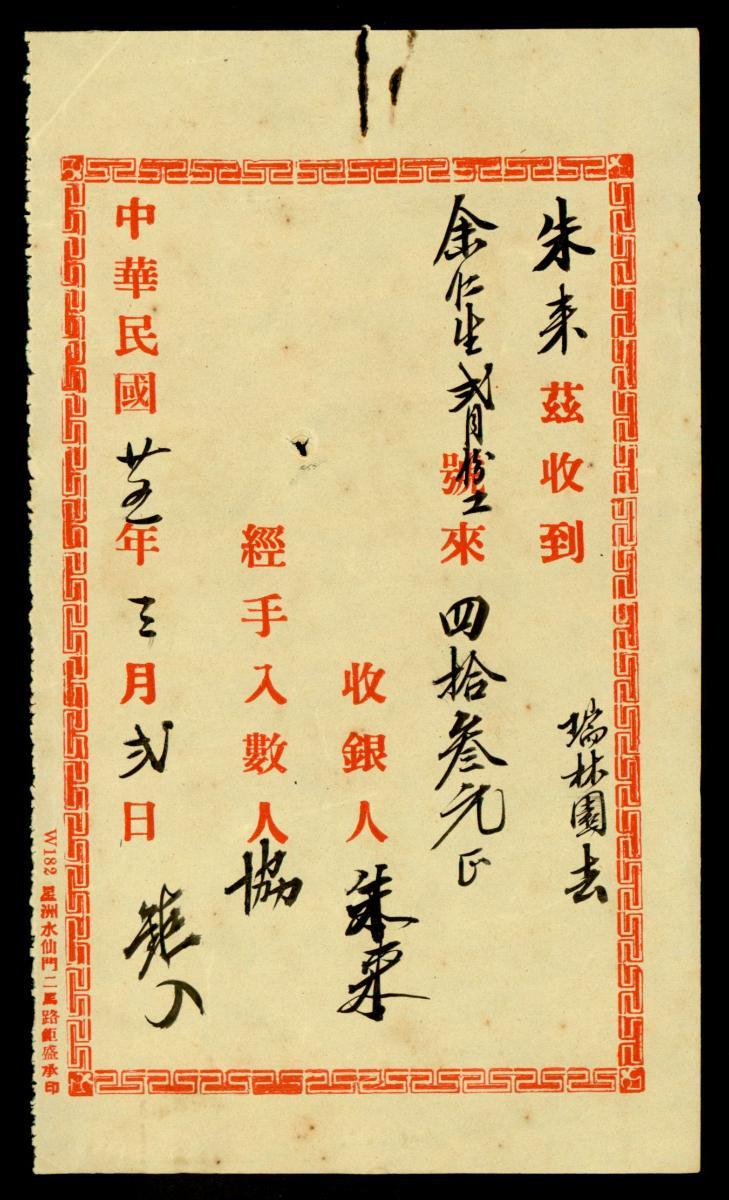 朱来茲收到 瑞林園去
余仁生貳月份工號來四拾叁元正
收銀人 朱来
經手入數人 協
中華民國廿五年三月弍日 入
W182 星洲水仙門二馬路鉅盛承印